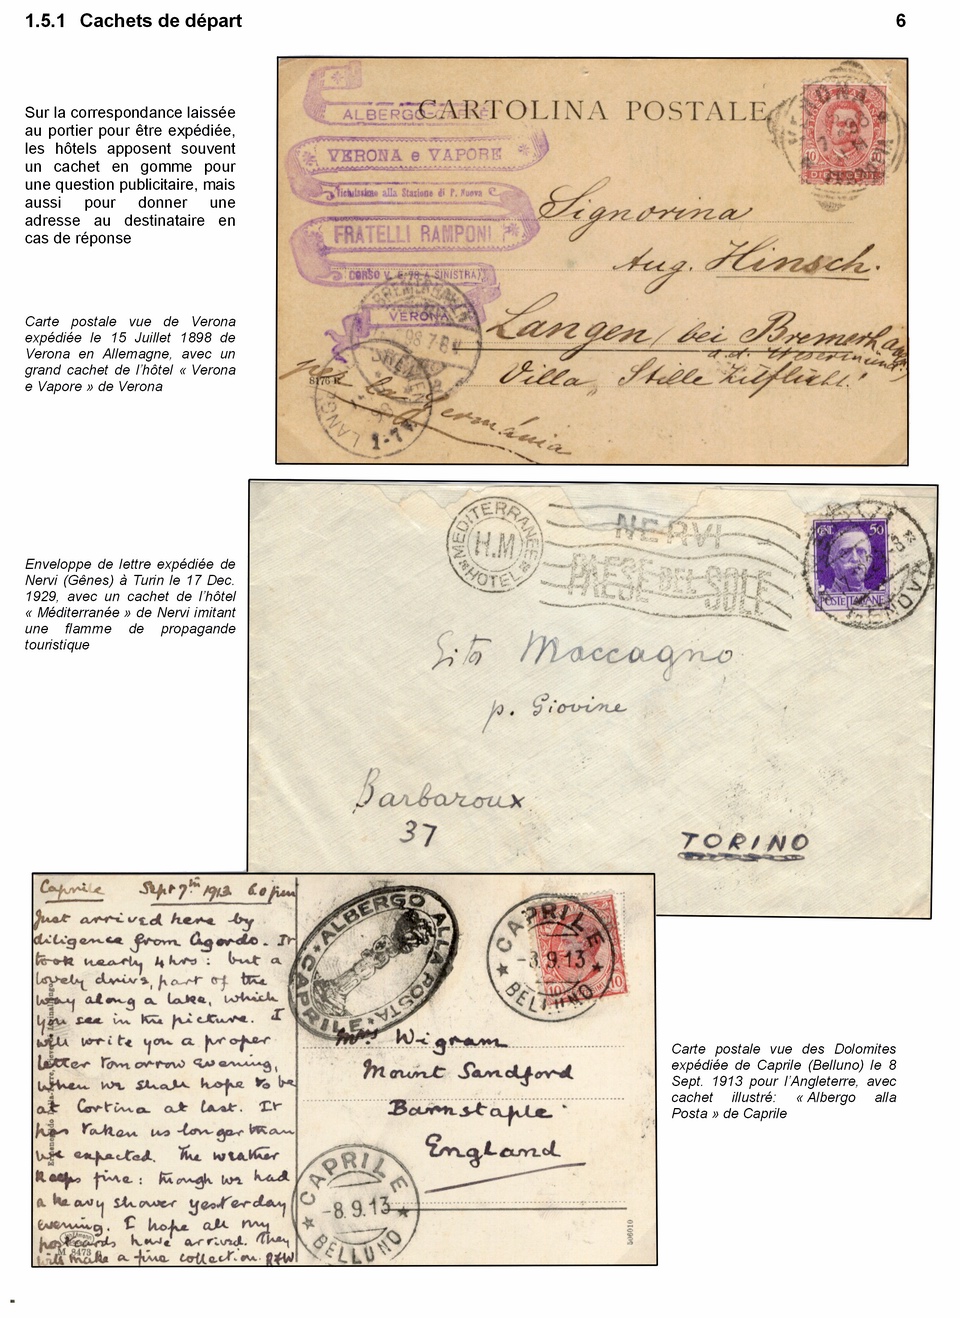 1.5.1 Cachets de départ 6
Sur la correspondance laissée
au portier pour être expédiée,
les hôtels apposent souvent
un cachet en gomme pour
une question publicitaire, mais
aussi pour donner une
adresse au destinataire en
cas de réponse
Carte postale vue de Verona
expédiée le 15 Juillet 1898 de
Verona en Allemagne, avec un
grand cachet de l'hôtel « Verona
e Vapore » de Verona
CARTOLINA POSTALE
ALBERGO CAFFÈ
VERONA e VAPORE
Vicinissimo alla Stazione di P. Nuova
FRATELLI RAMPONI
CORSO V. E. 98 A SINISTRA
VERONA
Signorina
Aug. Hinsch.
Langen (bei Bremerhaven
Villa
per la Germánia
Enveloppe de lettre expédiée de
Nervi (Gênes) à Turin le 17 Dec.
1929, avec un cachet de l'hôtel
« Méditerranée » de Nervi imitant
une flamme de propagande
touristique
MEDITERRANÉE
H.M
HOTEL
NERVI
PAESE DEL SOLE
CENT. 50
POSTE ITALIANE
Maccagno
p. Giovine
Barbaroux
37
TORINO
Caprile Sept 7th 1913 6.0 pm
Just arrived here by
diligence from Agordo. It
took nearly 4 hrs: but a
lovely drive, part of the
way along a lake, which
you see in the picture. I
will write you a proper
letter tomorrow evening,
when we shall hope to be
at Cortina at last. It
has taken us longer than
we expected. The weather
keeps fine: though we had
a heavy shower yesterday
evening. I hope all my
postcards have arrived. They
will make a fine collection.
M 8473
ALBERGO ALLA POSTA
CAPRILE
CAPRILE
-8.9.13
BELLUNO
Mrs Wigram
Mount Sandford
Barnstaple
England
CAPRILE
-8.9.13
BELLUNO
506010
Carte postale vue des Dolomites
expédiée de Caprile (Belluno) le 8
Sept. 1913 pour l'Angleterre, avec
cachet illustré: « Albergo alla
Posta » de Caprile